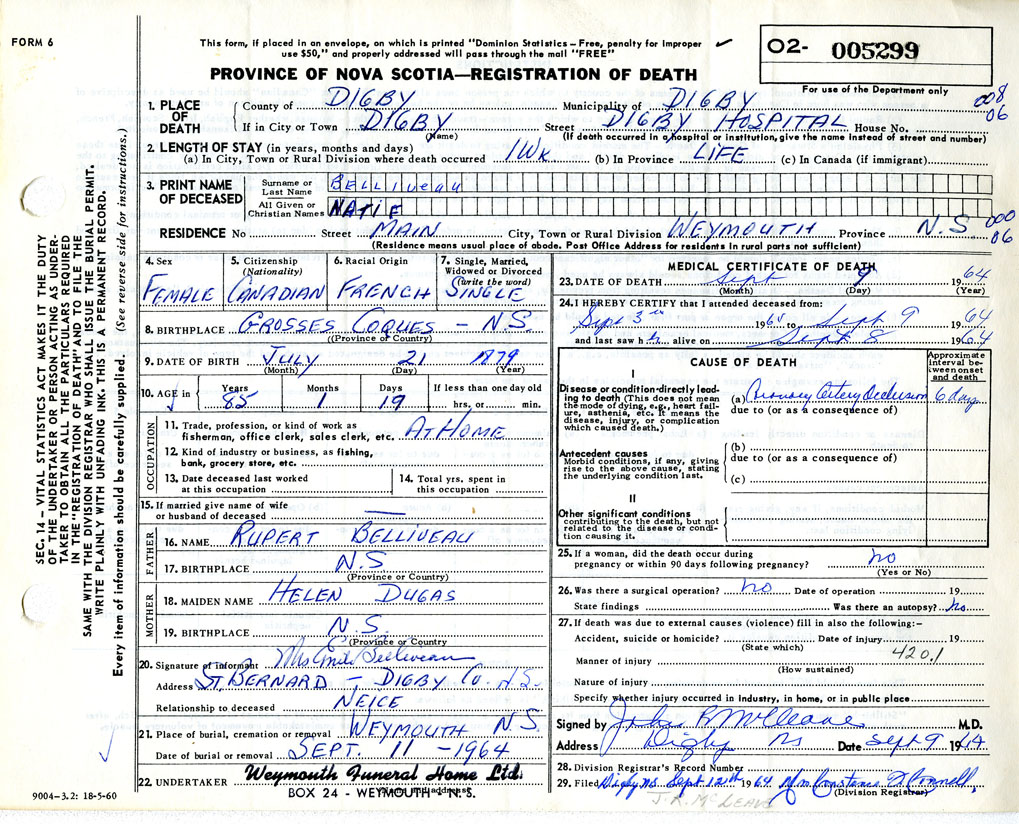 FORM 6
This form, if placed in an envelope, on which is printed "Dominion Statistics – Free, penalty for improper
use $50," and properly addressed will pass through the mail "FREE"
02- 005299
For use of the Department only
PROVINCE OF NOVA SCOTIA—REGISTRATION OF DEATH
008
06
1. PLACE OF DEATH
County of DIGBY Municipality of DIGBY
If in City or Town DIGBY Street DIGBY HOSPITAL House No.
(Name) (If death occurred in a hospital or institution, give the name instead of street and number)
2. LENGTH OF STAY (in years, months and days)
(a) In City, Town or Rural Division where death occurred 1 WK (b) In Province LIFE (c) In Canada (if immigrant)
3. PRINT NAME OF DECEASED
Surname or Last Name BELLIVEAU
All Given or Christian Names NATIE
000
06
RESIDENCE No Street MAIN City, Town or Rural Division WEYMOUTH Province N.S.
(Residence means usual place of abode. Post Office Address for residents in rural parts not sufficient)
4. Sex
FEMALE
5. Citizenship
(Nationality)
CANADIAN
6. Racial Origin
FRENCH
7. Single, Married,
Widowed or Divorced
(write the word)
SINGLE
8. BIRTHPLACE GROSSES COQUES – N.S.
(Province or Country)
9. DATE OF BIRTH JULY 21 1879
(Month) (Day) (Year)
10. AGE in
Years Months Days If less than one day old
85 1 19 hrs. or min.
OCCUPATION
11. Trade, profession, or kind of work as
fisherman, office clerk, sales clerk, etc. AT HOME
12. Kind of industry or business, as fishing,
bank, grocery store, etc.
13. Date deceased last worked
at this occupation
14. Total yrs. spent in
this occupation
15. If married give name of wife
or husband of deceased —
FATHER
16. NAME RUPERT BELLIVEAU
17. BIRTHPLACE N.S
(Province or Country)
MOTHER
18. MAIDEN NAME HELEN DUGAS
19. BIRTHPLACE N.S.
(Province or Country
20. Signature of informant Mrs Emile Belliveau
Address ST. BERNARD – DIGBY CO. N.S.
Relationship to deceased NEICE
21. Place of burial, cremation or removal WEYMOUTH N.S.
Date of burial or removal SEPT. 11 – 1964
22. UNDERTAKER Weymouth Funeral Home Ltd.
BOX 24 - WEYMOUTH - N. S.
9004–3.2: 18-5-60
MEDICAL CERTIFICATE OF DEATH
23. DATE OF DEATH Sept 9 1964
(Month) (Day) (Year)
24. I HEREBY CERTIFY that I attended deceased from:
Sept 3rd 1964 to Sept 9 1964
and last saw h er alive on Sept 8 1964
CAUSE OF DEATH
Approximate
interval be-
tween onset
and death
I
Disease or condition directly lead-
ing to death (This does not mean
the mode of dying, e.g., heart fail-
ure, asthenia, etc. It means the
disease, injury, or complication
which caused death.)
(a) Coronary Artery Occlusion 6 days
due to (or as a consequence of)
Antecedent causes
Morbid conditions, if any, giving
rise to the above cause, stating
the underlying condition last.
(b)
due to (or as a consequence of)
(c)
II
Other significant conditions
contributing to the death, but not
related to the disease or condi-
tion causing it.
25. If a woman, did the death occur during
pregnancy or within 90 days following pregnancy? no
(Yes or No)
26. Was there a surgical operation? no Date of operation 19
State findings Was there an autopsy? no
27. If death was due to external causes (violence) fill in also the following:–
Accident, suicide or homicide? Date of injury 19
(State which) 420.1
Manner of injury
(How sustained)
Nature of injury
Specify whether injury occurred in Industry, in home, or in public place
Signed by John R McCleave M.D.
Address Digby NS Date Sept 9 1964
28. Division Registrar's Record Number
29. Filed Digby NS. Sept 12th 1964 Constance
(Division Registrar)
J. R. McLeave
SEC. 14 – VITAL STATISTICS ACT MAKES IT THE DUTY
OF THE UNDERTAKER OR PERSON ACTING AS UNDER-
TAKER TO OBTAIN ALL THE PARTICULARS REQUIRED
IN THE "REGISTRATION OF DEATH" AND TO FILE THE
SAME WITH THE DIVISION REGISTRAR WHO SHALL ISSUE THE BURIAL PERMIT.
WRITE PLAINLY WITH UNFADING INK. THIS IS A PERMANENT RECORD.
Every item of information should be carefully supplied. (See reverse side for instructions.)